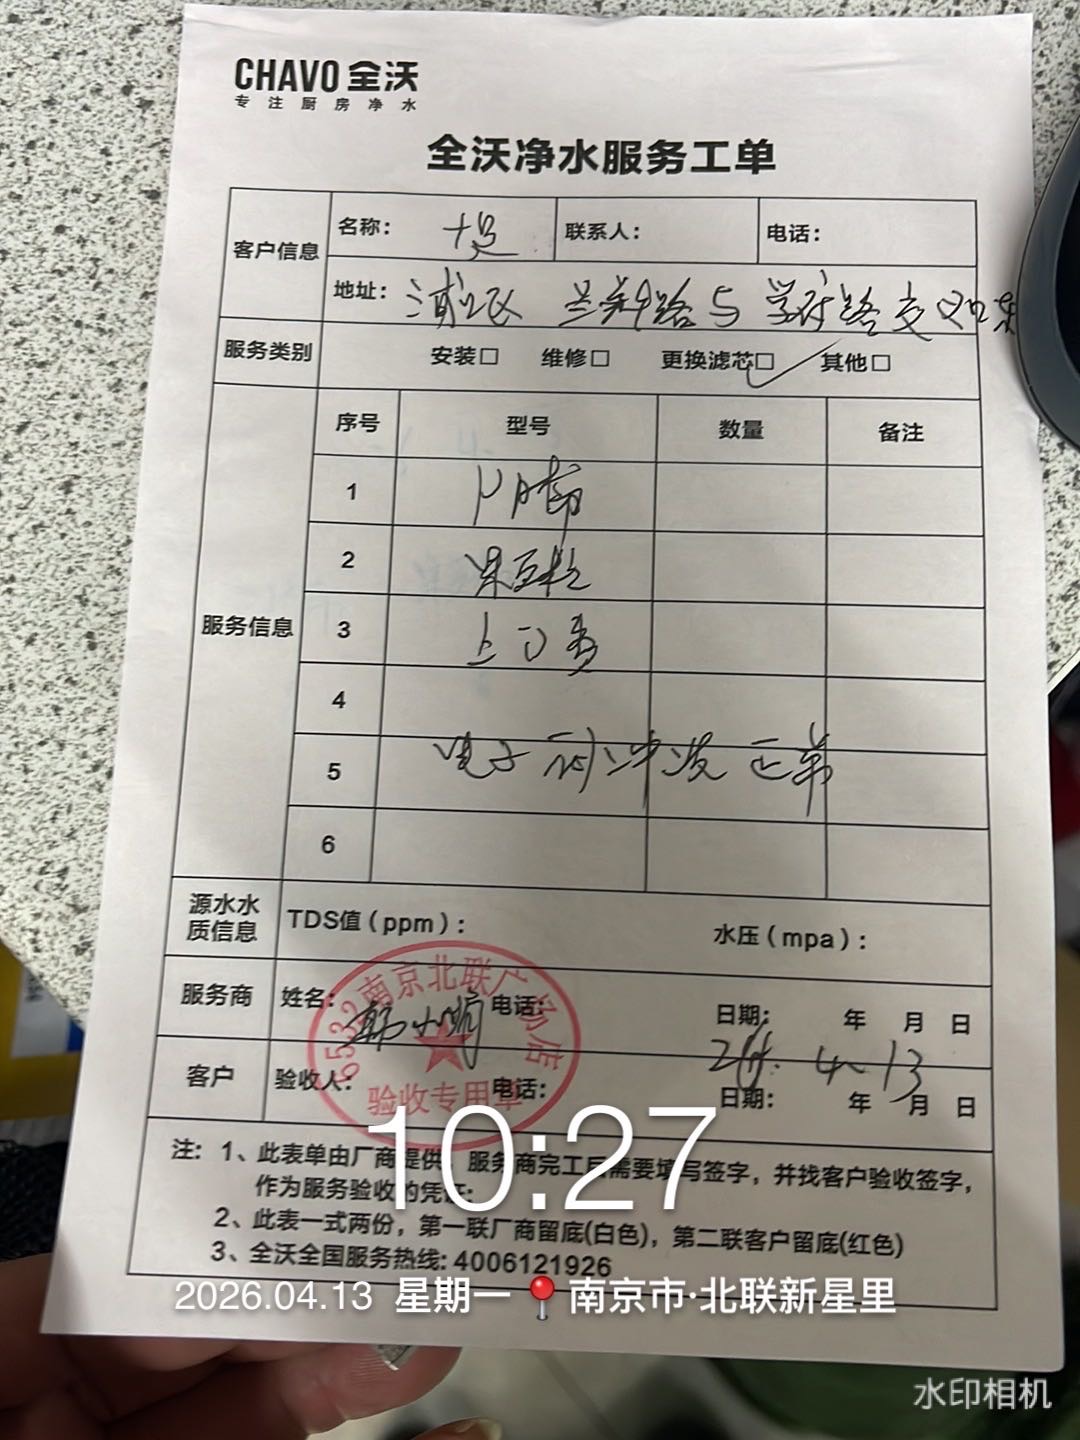 CHAVO 全沃
专注厨房净水
全沃净水服务工单
客户信息 名称： 联系人： 电话：
地址： 浦口区 兰花路与学府路交叉口东
服务类别 安装□ 维修□ 更换滤芯□ 其他□
服务信息 序号 型号 数量 备注
1
2
3 上门费
4
5 电子 冲洗 正常
6
源水水质信息 TDS值（ppm）： 水压（mpa）：
服务商 姓名： 韩小明 电话： 日期： 年 月 日
26. 4. 13
客户 验收人： 电话： 日期： 年 月 日
65332南京北联广场店
验收专用章
10:27
注：1、此表单由厂商提供，服务商完工后需要填写签字，并找客户验收签字，
作为服务验收的凭证；
2、此表一式两份，第一联厂商留底(白色)，第二联客户留底(红色)
3、全沃全国服务热线: 4006121926
2026.04.13 星期一 南京市·北联新星里
水印相机